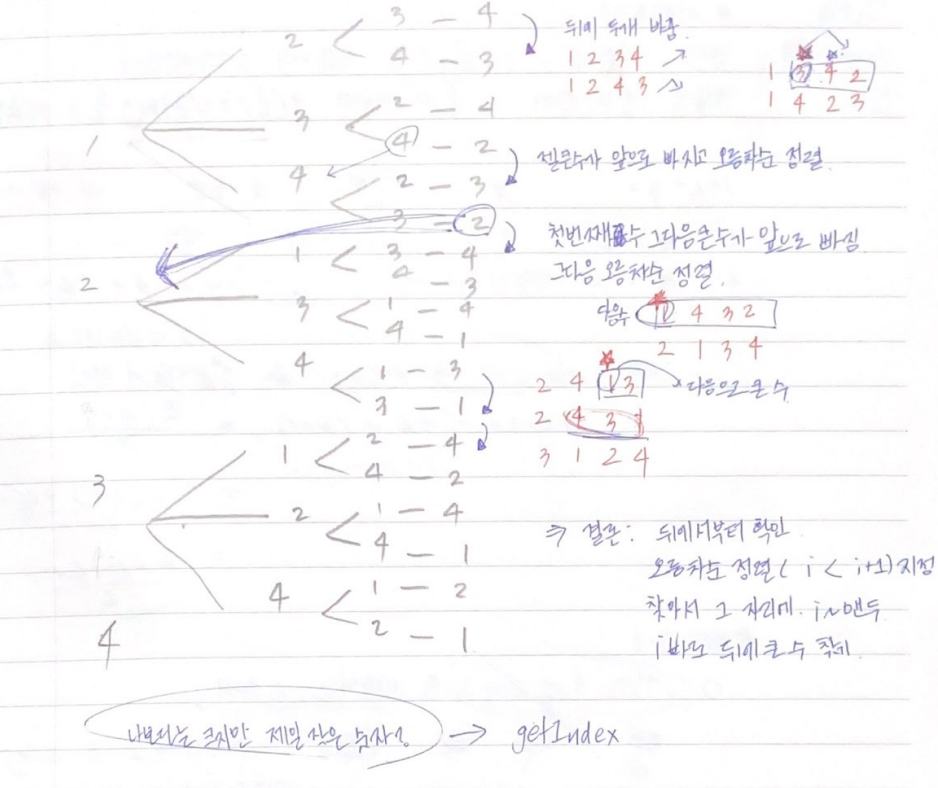 1
2 < 3 - 4
4 - 3
3 < 2 - 4
4 - 2
4 < 2 - 3
3 - 2
2
1 < 3 - 4
4 - 3
3 < 1 - 4
4 - 1
4 < 1 - 3
3 - 1
3
1 < 2 - 4
4 - 2
2 < 1 - 4
4 - 1
4 < 1 - 2
2 - 1
4
뒤에 두개 바꿈.
1 2 3 4
1 2 4 3
1 3 4 2
1 4 2 3
젤큰수가 앞으로 빠지고 오름차순 정렬.
첫번째 수 그다음큰수가 앞으로 빠짐
그다음 오름차순 정렬.
다음수 1 4 3 2
2 1 3 4
2 4 1 3 다음으로 큰 수
2 4 3 1
3 1 2 4
⇒ 결론: 뒤에서부터 확인
오름차순 정렬( i < i+1) 지점
찾아서 그 자리에. i~
i 바로 뒤에 큰 수 찾기.
나보다는 크지만 제일 작은 숫자 → getIndex